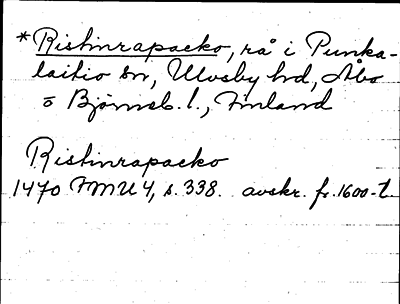 * Ristinrapacko, rå i Punka-
laitio sn, Ulvsby hd, Åbo
o Björneb. l., Finland
Ristinrapacko
1470 FMU 4, s. 338. avskr. fr. 1600-t.